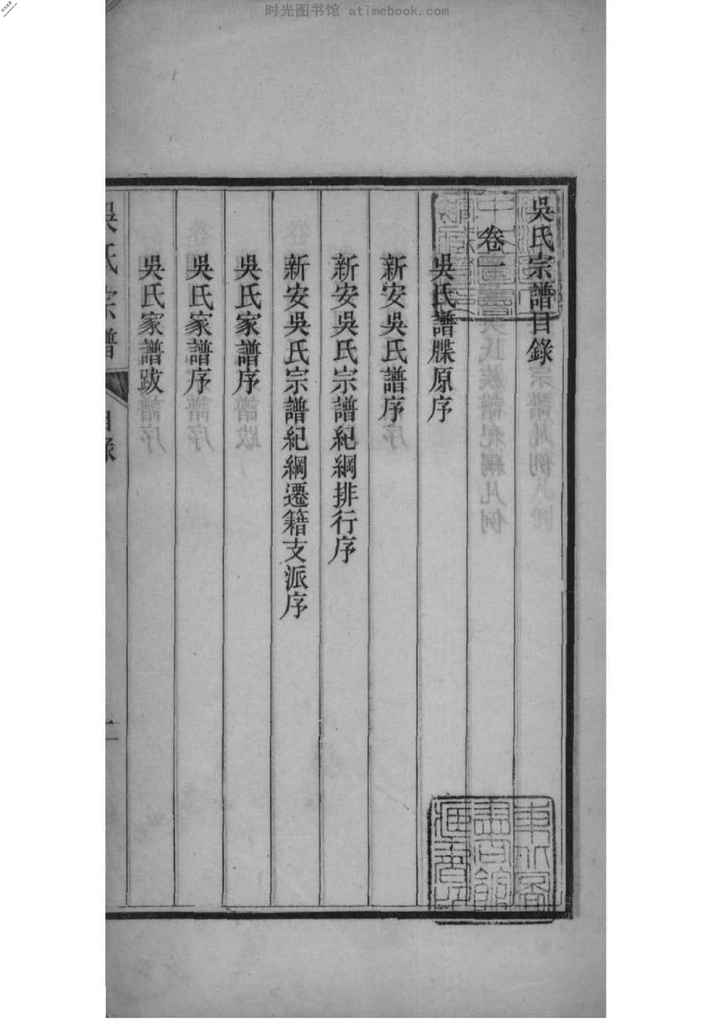 时光图书馆 atimebook.com
吳氏宗譜目錄
卷一
吳氏譜牒原序
新安吳氏譜序
新安吳氏宗譜紀綱排行序
新安吳氏宗譜紀綱遷籍支派序
吳氏家譜序
吳氏家譜序
吳氏家譜跋
吳氏宗譜
目錄
一